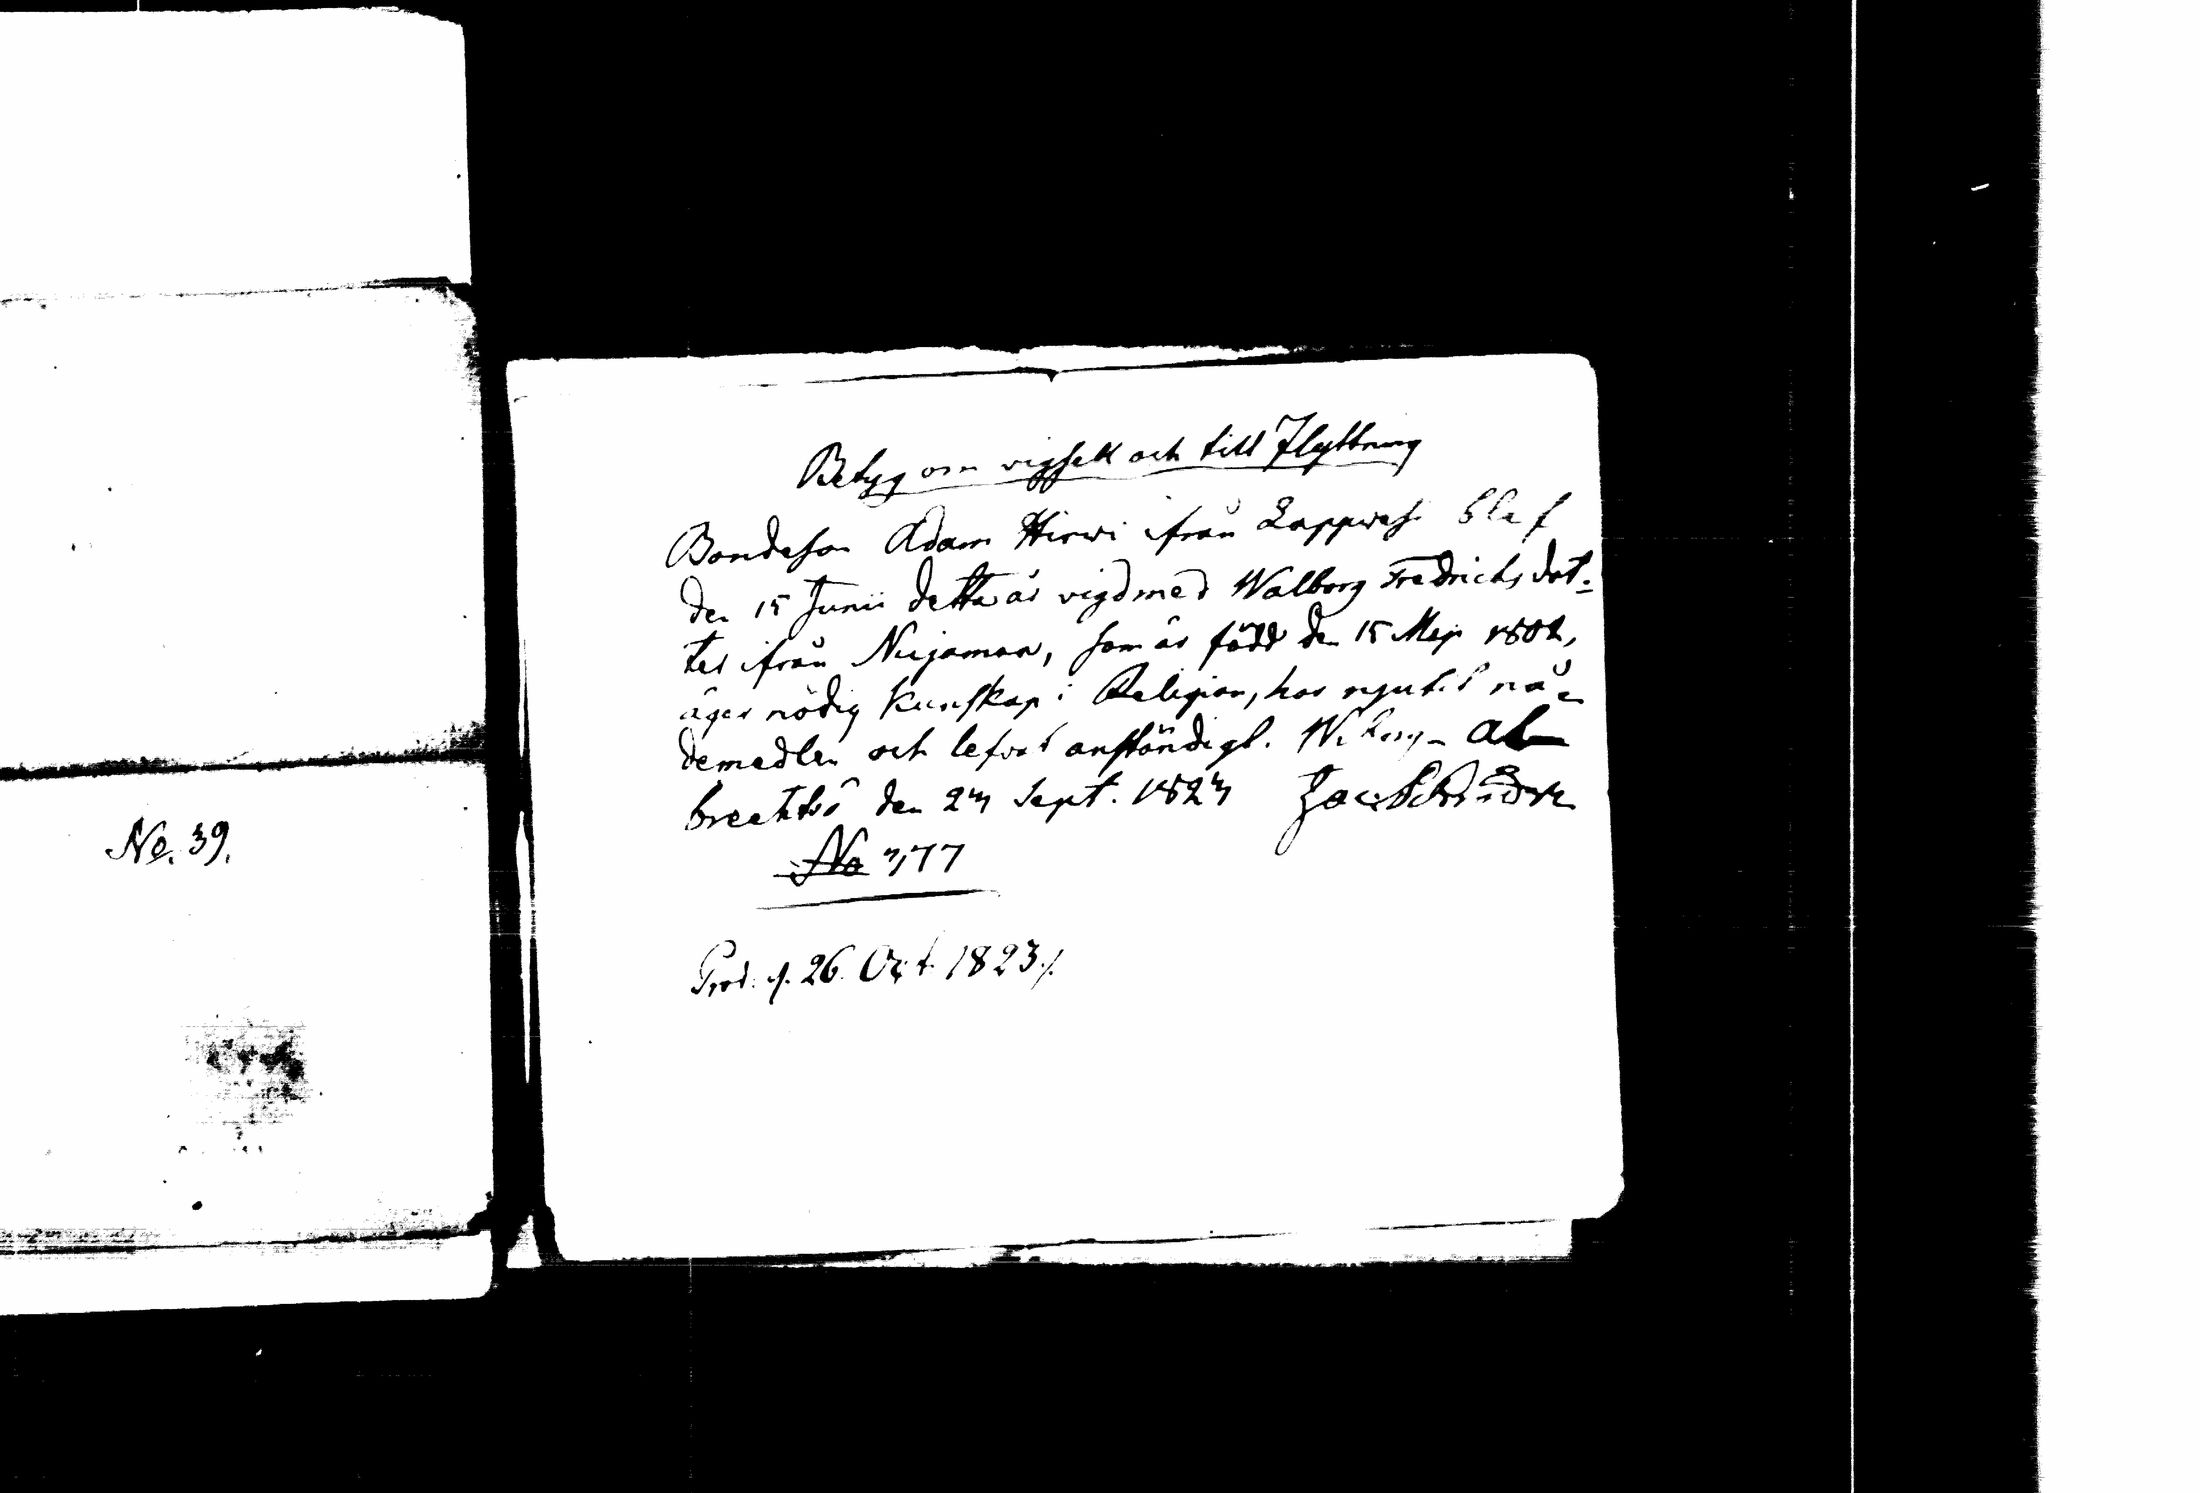 No. 39.
Betyg om vigsell och till Flyttning
Bondeson Adam Hirwi ifrån Lappwesi blef
den 15 Junii detta år vigd med Walborg Fredrichs dot-
ter ifrån Nuijamaa, som är född den 15 Maji 1802,
äger nödig Kunskap i Religion, har njutit nå-
demedlen och lefvat anständigt. Wiborg
den 23 Sept. 1823
No 377
Prod. d. 26. Oct. 1823./.